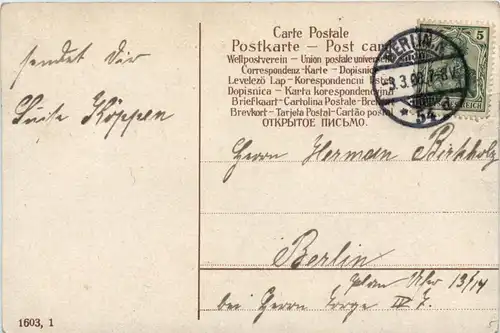 sendet Dir
Luise Köppen
Carte Postale
Postkarte — Post card
Weltpostverein — Union postale universelle
Correspondenz-Karte — Dopisnice
Levelező Lap — Korespondencni listek
Dopisnica — Karta korespondencyjna
Briefkaart — Cartolina Postale — Brefkort
Brevkort — Tarjeta Postal — Cartão postal
ОТКРЫТОЕ ПИСЬМО.
5
BERLIN
54
REICH
Herrn Herman Birkholz
Berlin
Ufer 13/14
bei Herrn IV
1603, 1